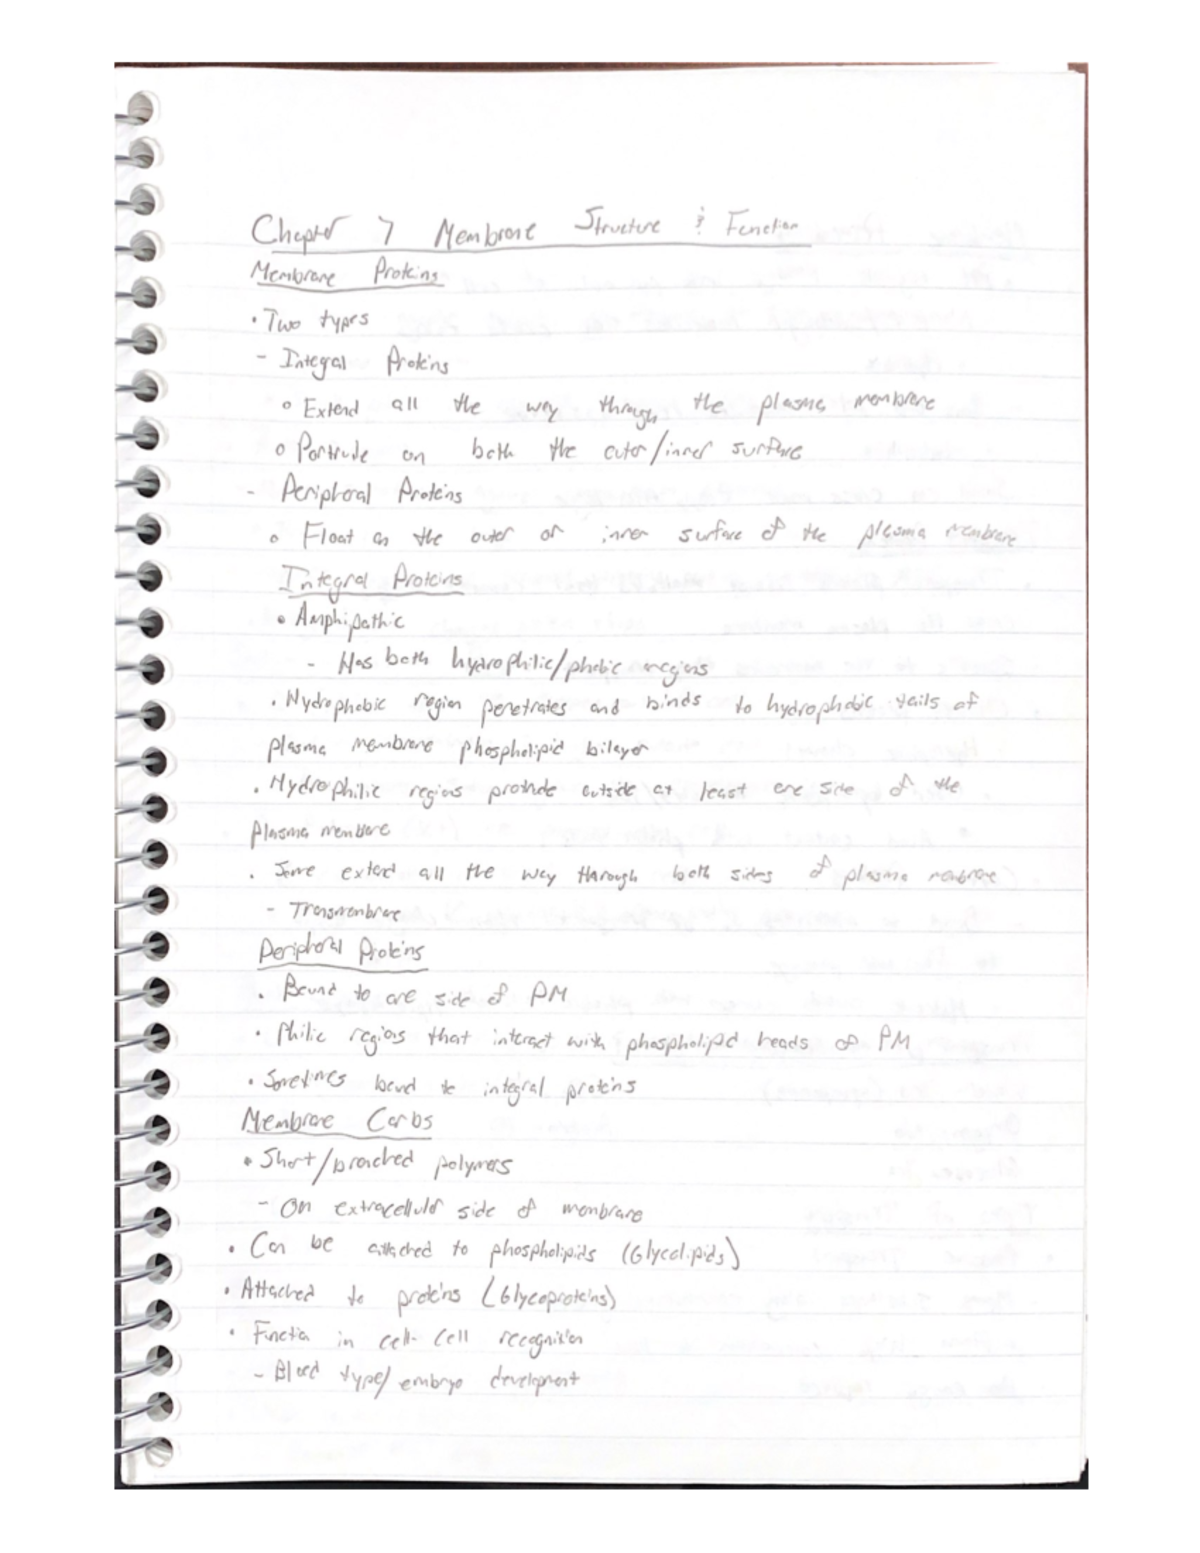 Chapter 7 Membrane Structure & Function
Membrane Proteins
• Two types
- Integral Proteins
o Extend all the way through the plasma membrane
o Portrude on both the outer/inner surface
- Peripheral Proteins
o Float on the outer or inner surface of the plasma membrane
Integral Proteins
• Amphipathic
- Has both hydrophilic/phobic regions
• Hydrophobic region penetrates and binds to hydrophobic tails of
plasma membrane phospholipid bilayer
• Hydrophilic regions protrude outside at least one side of the
plasma membrane
• Some extend all the way through both sides of plasma membrane
- Transmembrane
Peripheral Proteins
• Bound to one side of PM
• Philic regions that interact with phospholipid heads of PM
• Sometimes bound to integral proteins
Membrane Carbs
• Short/branched polymers
- On extracellular side of membrane
• Can be attached to phospholipids (Glycolipids)
• Attached to proteins (Glycoproteins)
• Function in cell-cell recognition
- Blood type/embryo development